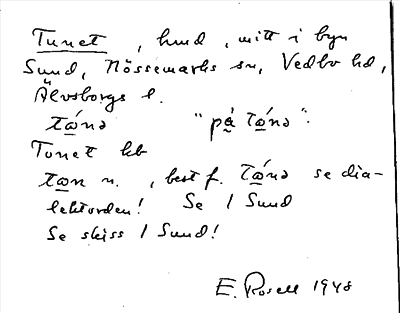 Tunet, hmd, mitt i byn
Sund, Nössemarks sn, Vedbo hd,
Älvsborgs l.
tώnə "på̀ tώnə".
Tunet hb
tωn n., best f. tώnə se dia-
lektorden! Se 1 Sund
Se skiss 1 Sund!
E. Rosell 1948